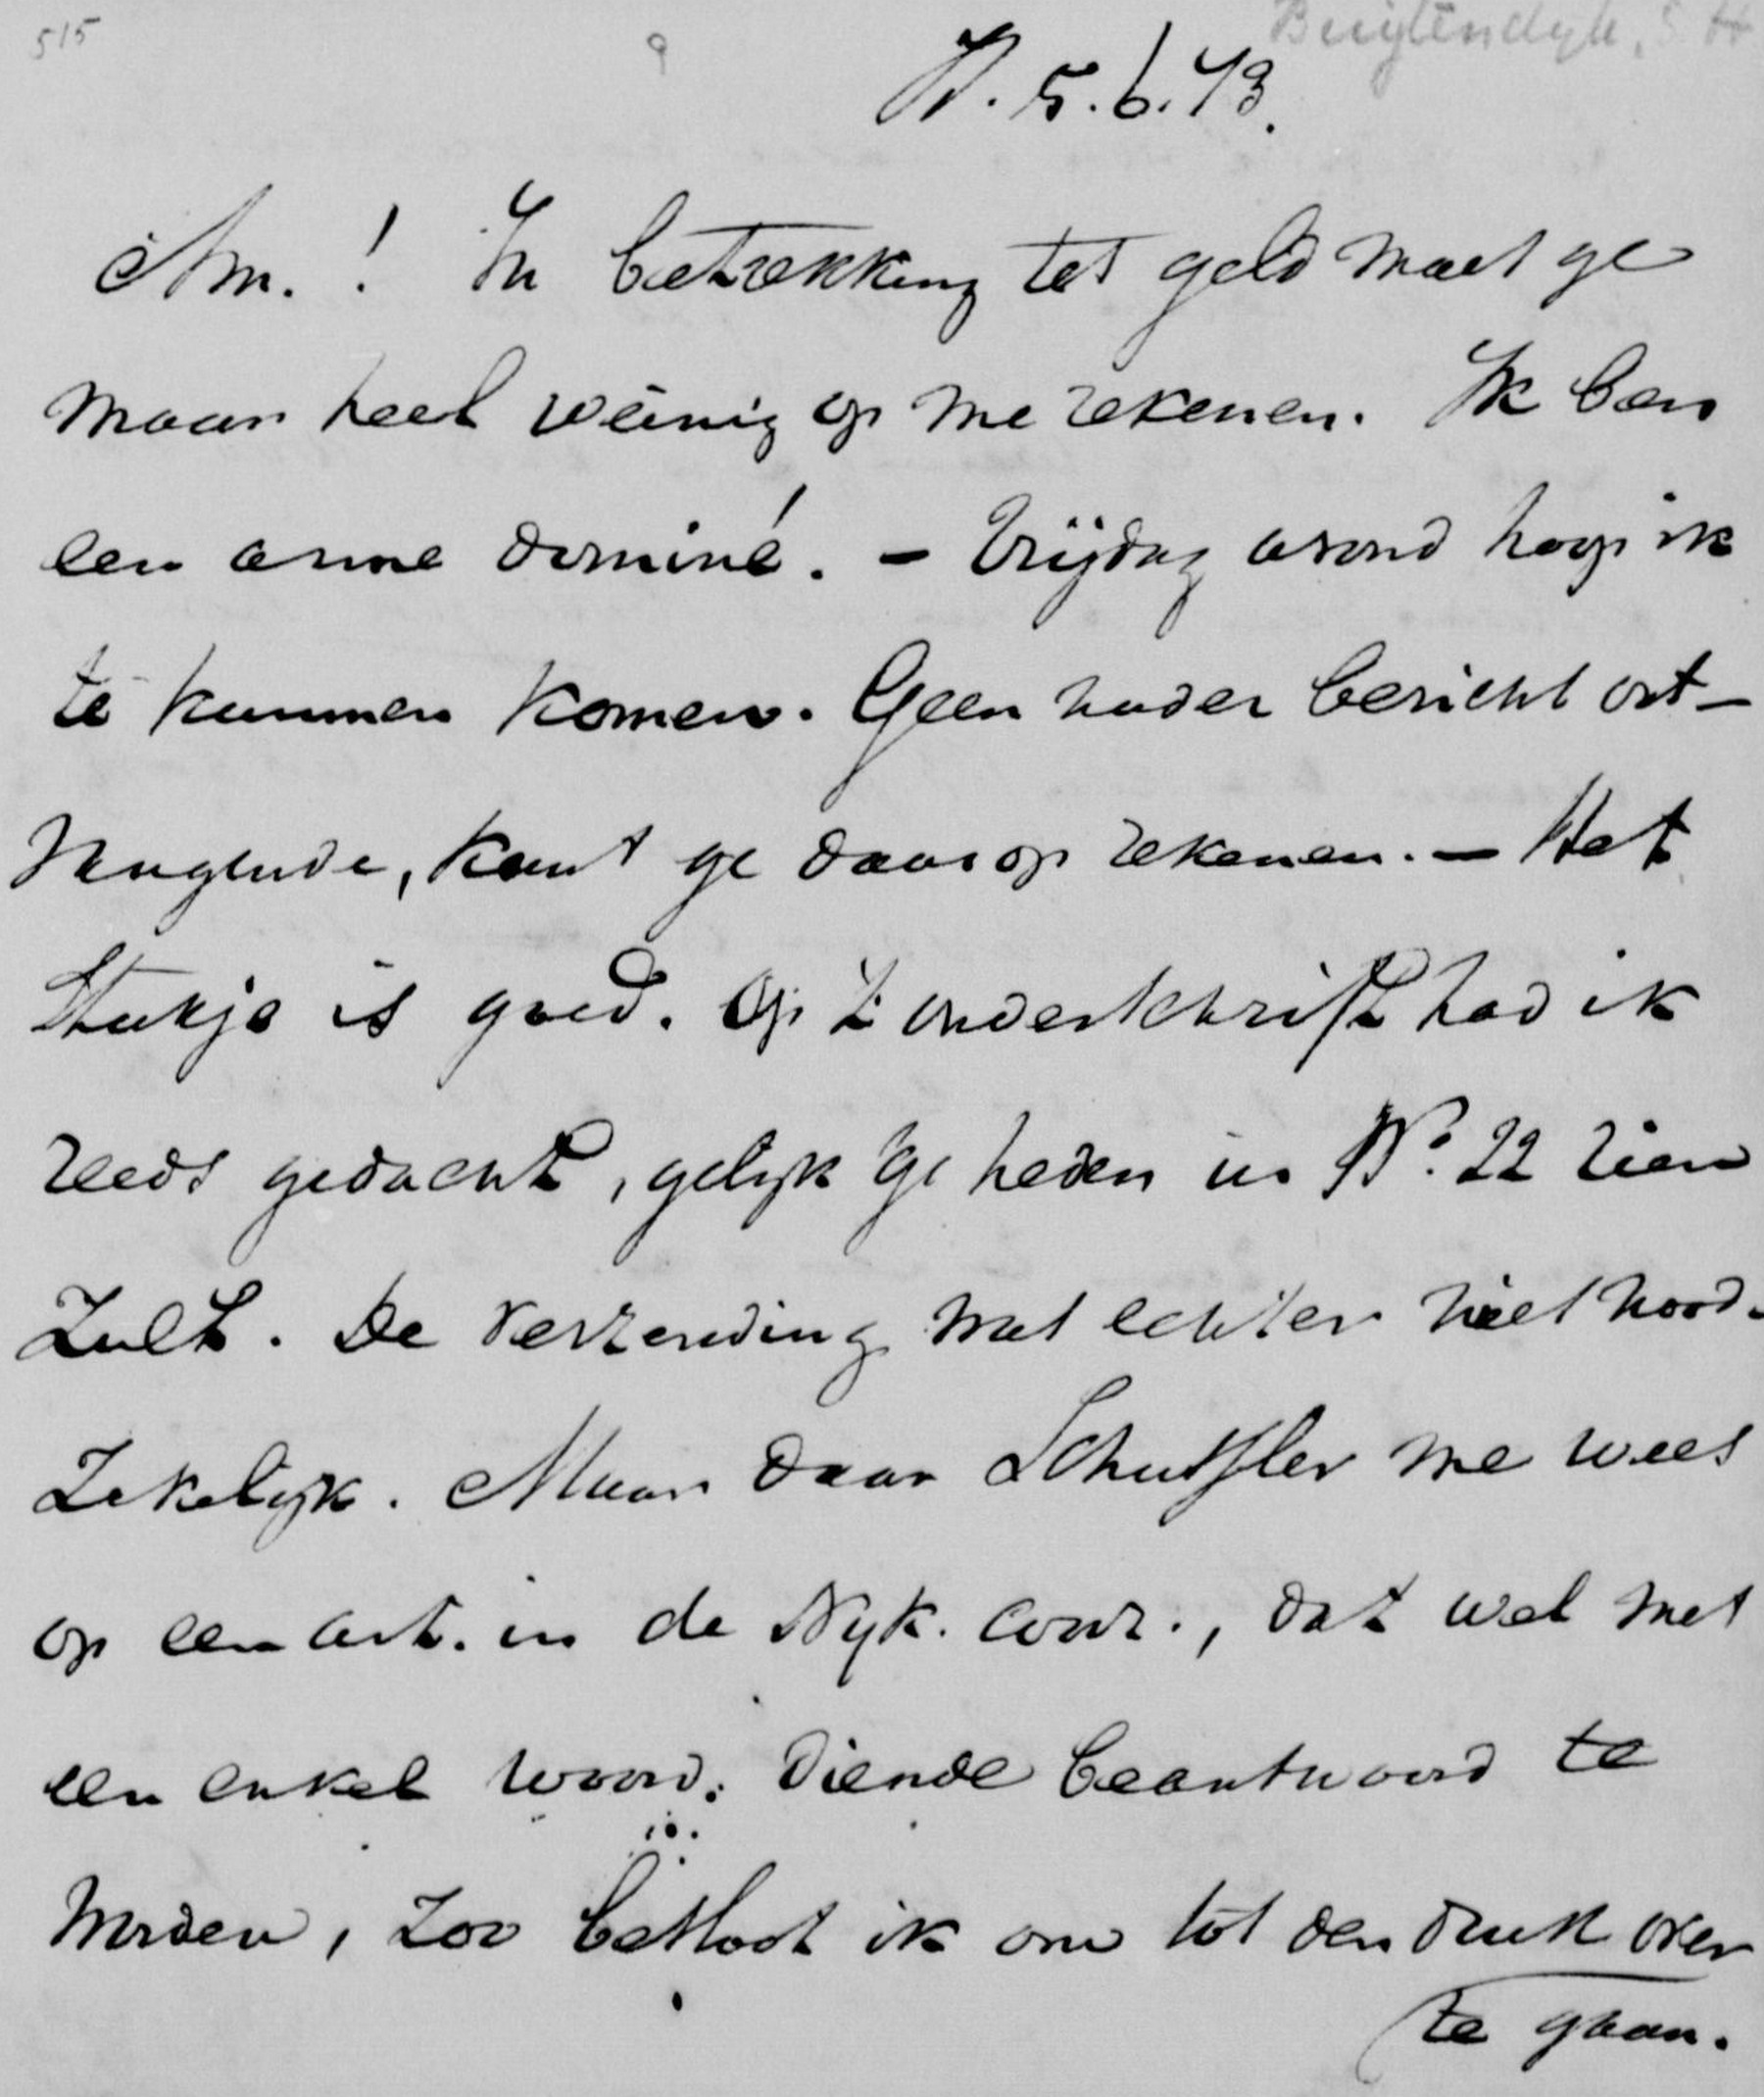 515 9 Buytendyk, S H
5.6.73.
Am.! In betrekking tot geld moet ge
maar heel weinig op me rekenen. Ik ben
een arme dominé. – Vrijdag avond hoop ik
te kunnen komen. Geen nader bericht ont-
vangende, kunt ge daarop rekenen. – Het
stukje is goed. Op 't onderschrift had ik
reeds gedacht, gelijk ge heden in No. 22 zien
zult. De verzending was echter niet nood-
zakelijk. Maar daar me wees
op een art. in de Nyk. Cour., dat wel met
een enkel woord diende beantwoord te
worden, zoo besloot ik om tot den druk over
te gaan.